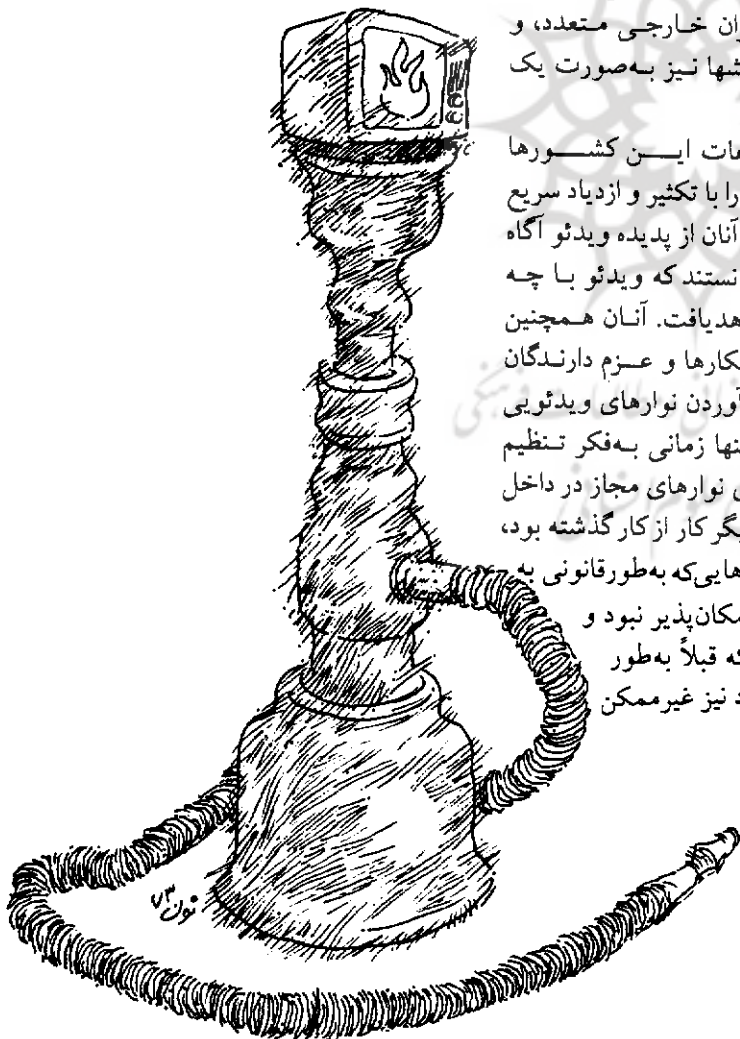 ران خارجی متعدد، و
شها نیز به‌صورت یک
عات ایـــن کشـــورها
را با تکثیر و ازدیاد سریع
آنان از پدیده ویدئو آگاه
نستند که ویدئو بـا چـه
هدیافت. آنـان همـچنین
کارها و عـزم دارنـدگان
آوردن نوارهای ویدئویی
نها زمانی بـه‌فکر تـنظیم
ی نوارهای مجاز در داخل
یگر کار از کار گذشته بود،
هایی‌که به‌طورقانونی به
مکان‌پذیر نبود و
که قبلاً به‌طور
د نیز غیرممکن
نون ۷۳